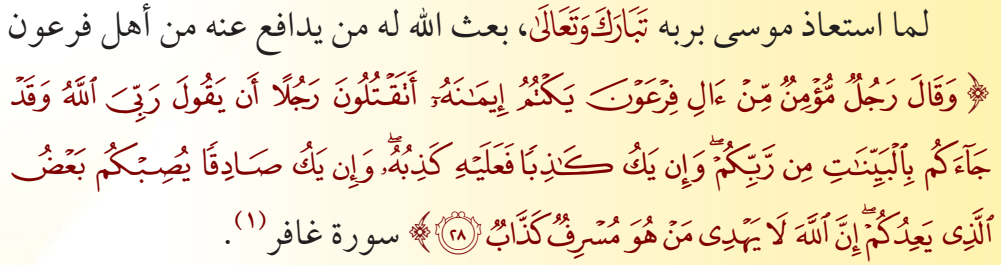 لما استعاذ موسى بربه تَبَارَكَ وَتَعَالَىٰ، بعث الله له من يدافع عنه من أهل فرعون
﴿ وَقَالَ رَجُلٌ مُّؤْمِنٌ مِّنْ ءَالِ فِرْعَوْنَ يَكْتُمُ إِيمَٰنَهُۥٓ أَتَقْتُلُونَ رَجُلًا أَن يَقُولَ رَبِّىَ ٱللَّهُ وَقَدْ
جَآءَكُم بِٱلْبَيِّنَٰتِ مِن رَّبِّكُمْ ۖ وَإِن يَكُ كَٰذِبًا فَعَلَيْهِ كَذِبُهُۥ ۖ وَإِن يَكُ صَادِقًا يُصِبْكُم بَعْضُ
ٱلَّذِى يَعِدُكُمْ ۖ إِنَّ ٱللَّهَ لَا يَهْدِى مَنْ هُوَ مُسْرِفٌ كَذَّابٌ ٢٨ ﴾ سورة غافر (١).